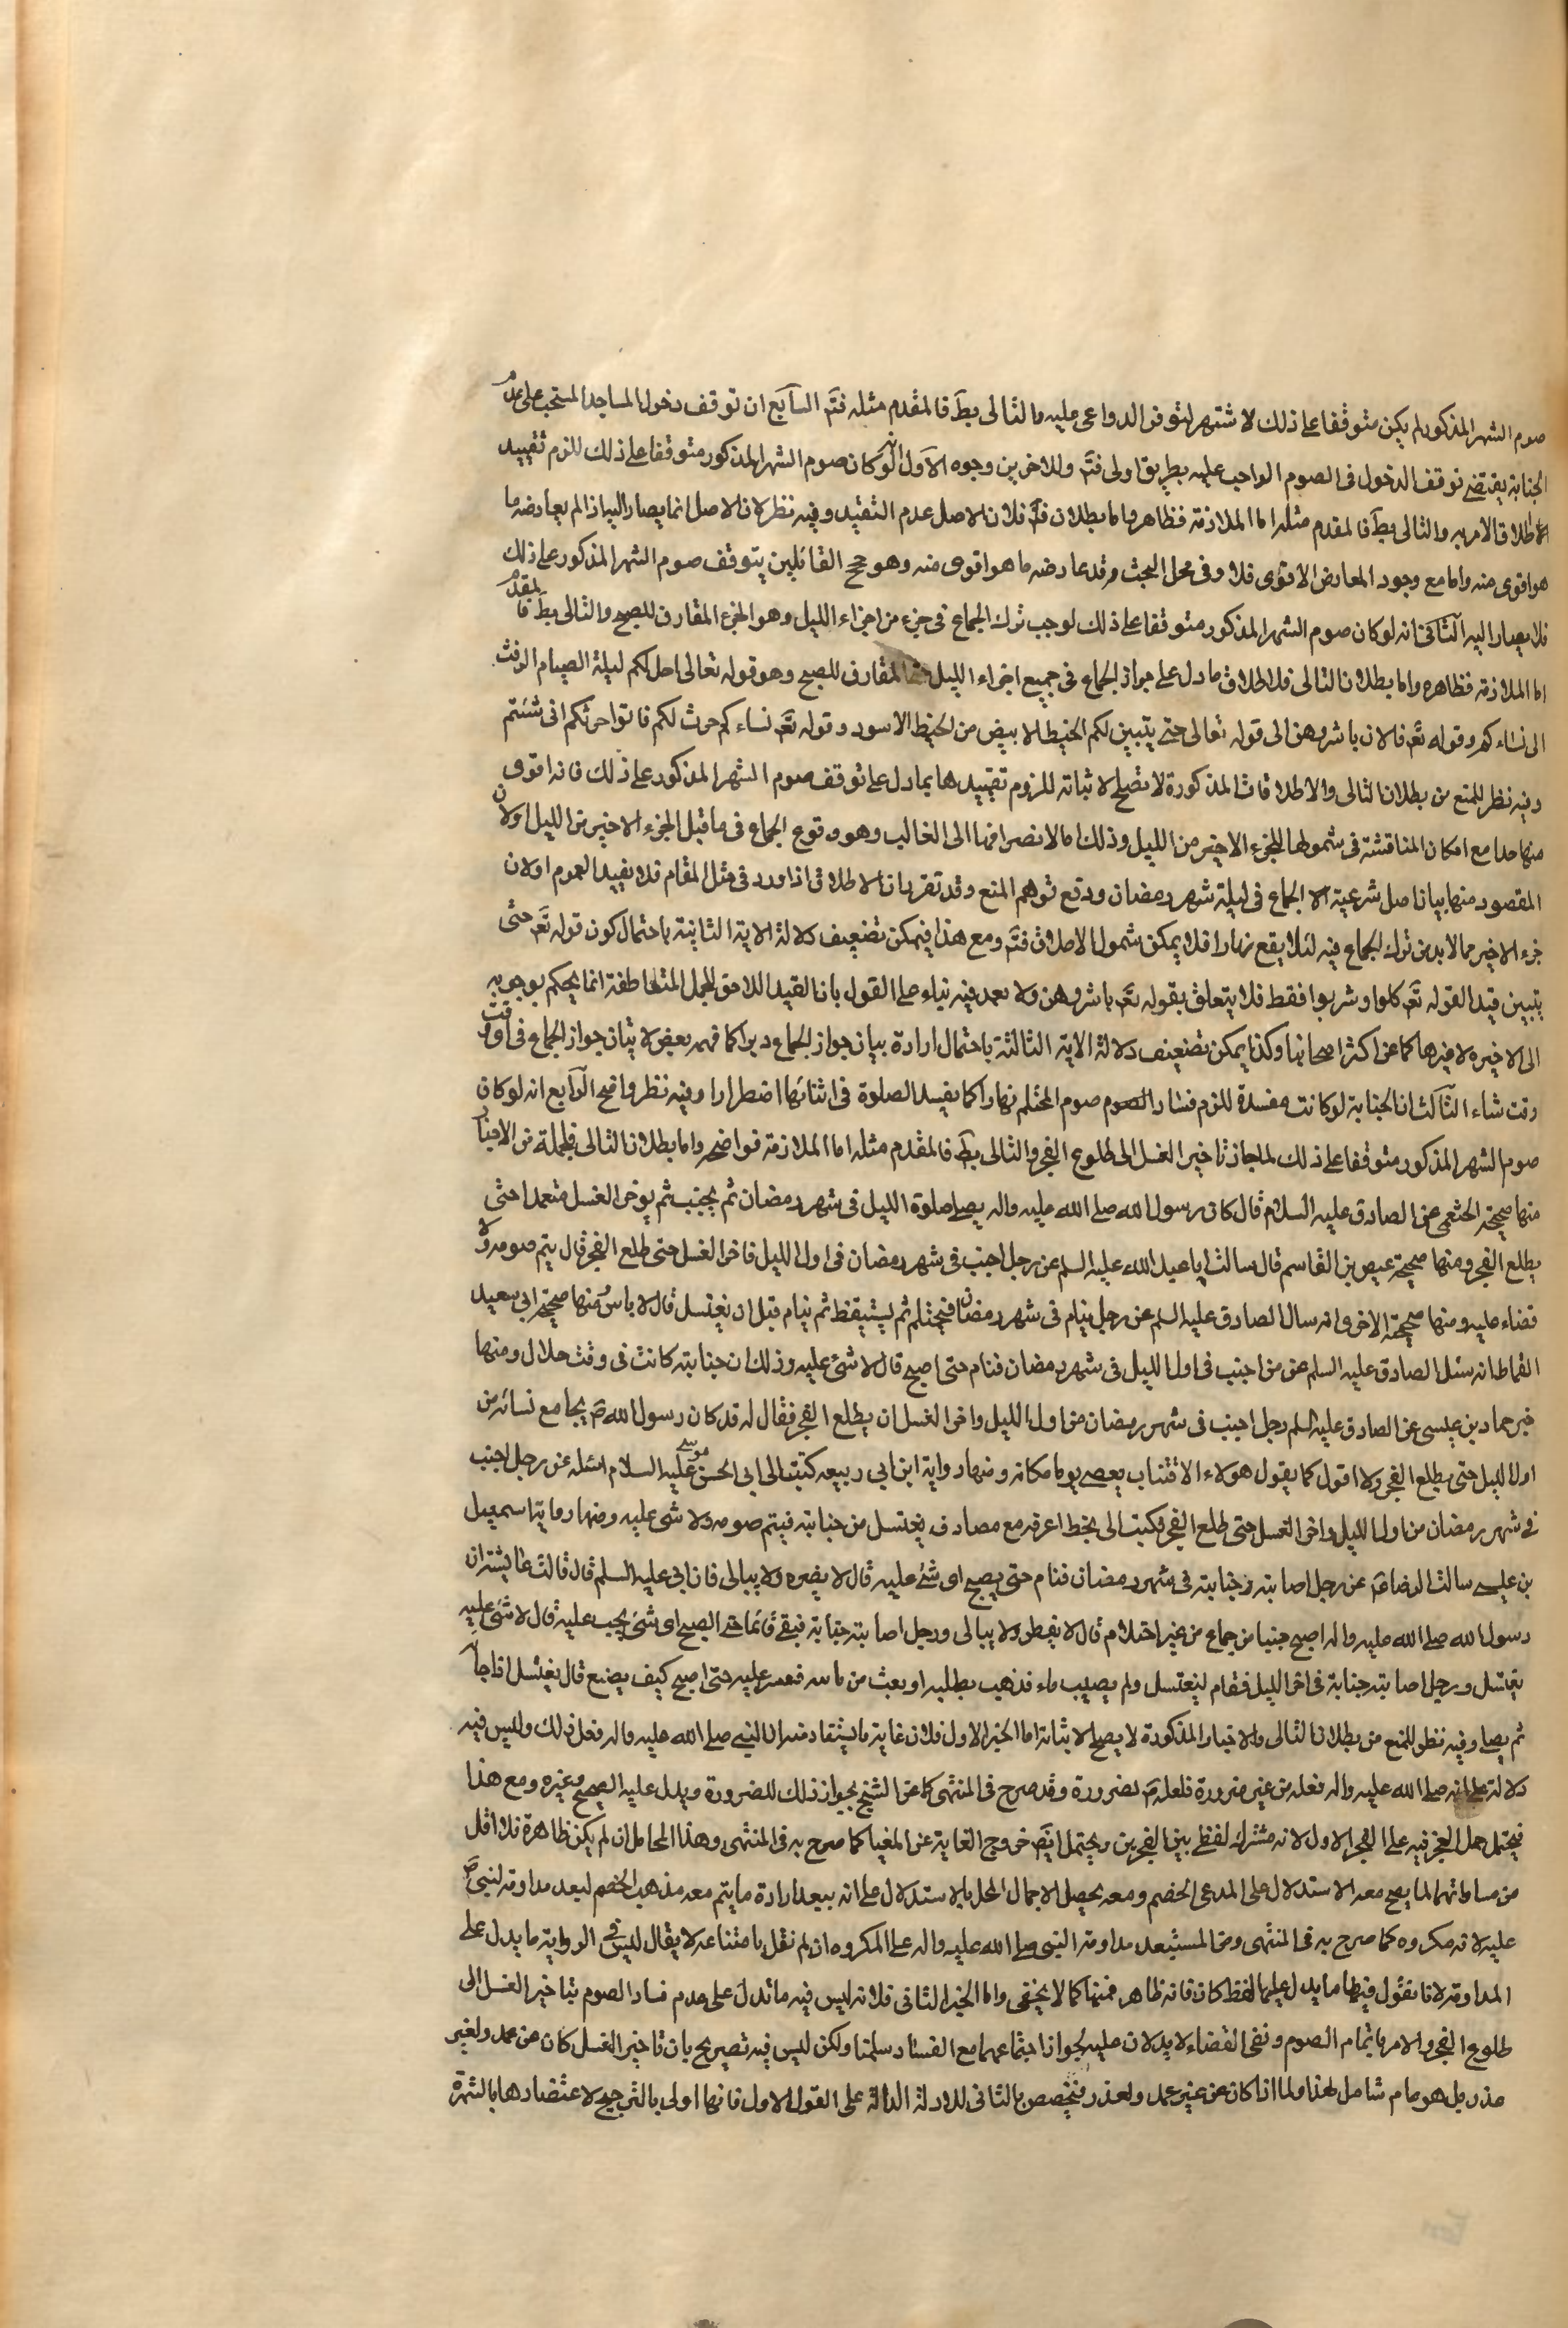 صوم الشهر المذكور لم يكن متوقفا على ذلك لاشتهر لتوفر الدواعى عليه والتالى بط فالمقدم مثله فتم السابع ان توقف دخول المساجد المستحب على عدم
الجنابة يقتضى توقف الدخول فى الصوم الواجب عليه بطريق اولى فتم وللاخرين وجوه الاول انه لو كان صوم الشهر المذكور متوقفا على ذلك للزم تقييد
اطلاق الامر به والتالى بط فالمقدم مثله اما الملازمة فظاهر واما بطلان فلان الاصل عدم التقييد وفيه نظر لان الاصل انما يصار اليه اذا لم يعارضه ما
هو اقوى منه واما مع وجود المعارض الاقوى فلا وفى محل البحث قد عارضه ما هو اقوى منه وهو حجج القائلين بتوقف صوم الشهر المذكور على ذلك
فلا يصار اليه الثانى انه لو كان صوم الشهر المذكور متوقفا على ذلك لوجب ترك الجماع فى جزء من اجزاء الليل وهو الجزء المقارن للصبح والتالى بط فالمقدم
اما الملازمة فظاهرة واما بطلان التالى فلاطلاق ما دل على جواز الجماع فى جميع اجزاء الليل المقارن للصبح وهو قوله تعالى احل لكم ليلة الصيام الرفث
الى نساءكم وقوله تع فالان باشروهن الى قوله تعالى حتى يتبين لكم الخيط الابيض من الخيط الاسود وقوله تع نساءكم حرث لكم فاتوا حرثكم انى شئتم
وفيه نظر للمنع من بطلان التالى والاطلاقات المذكورة لا تصلح لاثباته للزوم تقييدها بما دل على توقف صوم الشهر المذكور على ذلك فانه اقوى
منها جدا مع امكان المناقشة فى شمولها للجزء الاخير من الليل وذلك اما لانصرافها الى الغالب وهو وقوع الجماع فى ما قبل الجزء الاخير من الليل او لان
المقصود منها بيان اصل شرعية الجماع فى ليلة شهر رمضان ودفع توهم المنع وقد تقرر ان الاطلاق اذا ورد فى مثل المقام فلا يفيد العموم او لان
جزء الاخير مما لا بد من ترك الجماع فيه لئلا يقع نهارا فلا يمكن شمول الاطلاق فتم ومع هذا فيمكن تضعيف دلالة الاية الثانية باحتمال كون قوله تع حتى
يتبين قيدا لقوله تع كلوا وشربوا فقط فلا يتعلق بقوله تع باشروهن ولا بعد فيه بناء على القول بان القيد اللاحق للجمل المتعاطفة انما يحكم برجوعه
الى الاخيرة لا غيرها كما عن اكثر اصحابنا وكذا يمكن تضعيف دلالة الاية الثالثة باحتمال ارادة بيان جواز الجماع دبرا كما فهمه بعض لا بيان جواز الجماع فى اى وقت
وقت شاء الثالث ان الجنابة لو كانت مفسدة للزم فساد الصوم صوم المحتلم نهارا كما يفسد الصلوة فى اثنائها اضطرارا وفيه نظر واضح الرابع انه لو كان
صوم الشهر المذكور متوقفا على ذلك لما جاز تاخير الغسل الى طلوع الفجر والتالى بط فالمقدم مثله اما الملازمة فواضحة واما بطلان التالى فلجملة من الاخبار
منها صحيحة الخثعمى عن الصادق عليه السلام قال كان رسول الله صلى الله عليه واله يصلى صلوة الليل فى شهر رمضان ثم يجنب ثم يؤخر الغسل متعمدا حتى
يطلع الفجر ومنها صحيحة عيص بن القاسم قال سالت ابا عبد الله عليه السلم عن رجل اجنب فى شهر رمضان فى اول الليل فاخر الغسل حتى طلع الفجر قال يتم صومه ولا
قضاء عليه ومنها صحيحة الاخر وانه سال الصادق عليه السلم عن رجل ينام فى شهر رمضان فيحتلم ثم يستيقظ ثم ينام قبل ان يغتسل قال لا باس ومنها صحيحة ابى سعيد
القماط انه سئل الصادق عليه السلم عن من اجنب فى اول الليل فى شهر رمضان فنام حتى اصبح قال لا شئ عليه وذلك ان جنابته كانت فى وقت حلال ومنها
خبر حماد بن عيسى عن الصادق عليه السلم رجل اجنب فى شهر رمضان من اول الليل واخر الغسل ان يطلع الفجر فقال له قد كان رسول الله ص يجامع نسائه من
اول الليل حتى يطلع الفجر ولا اقول كما يقول هولاء الاقشاب يقضى يوما مكانه ومنها رواية ابن ابى ربيعه كتبت الى ابى الحسن موسى عليه السلام اسئله عن رجل اجنب
فى شهر رمضان من اول الليل واخر الغسل حتى طلع الفجر فكتب الى بخط اعرفه مع مصادف يغتسل من جنابته فيتم صومه ولا شى عليه ومنها رواية اسمعيل
بن عيسى سالت الرضا ع عن رجل اصابته جنابته فى شهر رمضان فنام حتى يصبح اى شئ عليه قال لا يضره ولا يبالى فان ابى عليه السلم قال قالت عايشة ان
رسول الله صلى الله عليه واله اصبح جنبا من جماع من غير احتلام قال لا يفطر ولا يبالى ورجل اصابته جنابة فبقى نائما حتى الصبح اى شئ يجب عليه قال لا شئ عليه
يغتسل ورجل اصابته جنابة فى اخر الليل فقام ليغتسل ولم يصيب ماء فذهب يطلبه او بعث من ياتيه فعسر عليه حتى اصبح كيف يصنع قال يغتسل اذا جاء
ثم يصلى وفيه نظر للمنع من بطلان التالى والاخبار المذكورة لا يصلح لاثباته اما الخبر الاول فلان غاية ما يستفاد منه ان النبى صلى الله عليه واله فعل ذلك وليس فيه
دلالة على انه صلى الله عليه واله فعله من غير ضرورة فلعله ص لضرورة وقد صرح فى المنتهى كما عن الشيخ بجواز ذلك للضرورة ويدل عليه الصحيح وغيره ومع هذا
فيحتمل حمل الفجر فيه على الفجر الاول لانه مشترك لفظى بين الفجرين ويحتمل ايض خروج الغاية عن المغيا كما صرح به فى المنتهى وهذا المحامل ان لم يكن ظاهرة فلا اقل
من مساواتهما لما يصح معه الاستدلال على المدعى الخصم ومعه يحصل الاجمال المخل بالاستدلال على انه يبعد ارادة ما يتم معه مذهب الخصم لبعد مداومة النبى ص
عليه لانه مكروه كما صرح به فى المنتهى ومن المستبعد مداومة النبى صلى الله عليه واله على المكروه ان لم نقل بامتناعه لا يقال ليس فى الرواية ما يدل على
المداومة لانا نقول فيها ما يدل عليها لفظ كان فانه ظاهر فيها كما لا يخفى واما الخبر الثانى فلانه ليس فيه ما تدل على عدم فساد الصوم بتاخير الغسل الى
طلوع الفجر والامر باتمام الصوم ونفى القضاء لا يدلان عليه لجواز اجتماعهما مع الفساد سلمنا ولكن ليس فيه تصريح بان تاخير الغسل كان عن عمد ولغير
عذر بل هو عام شامل لهذا ولما اذا كان عن غير عمد ولعذر فنخصص بالثانى للادلة الدالة على القول الاول فانها اولى بالترجيح لاعتضادها بالشهرة